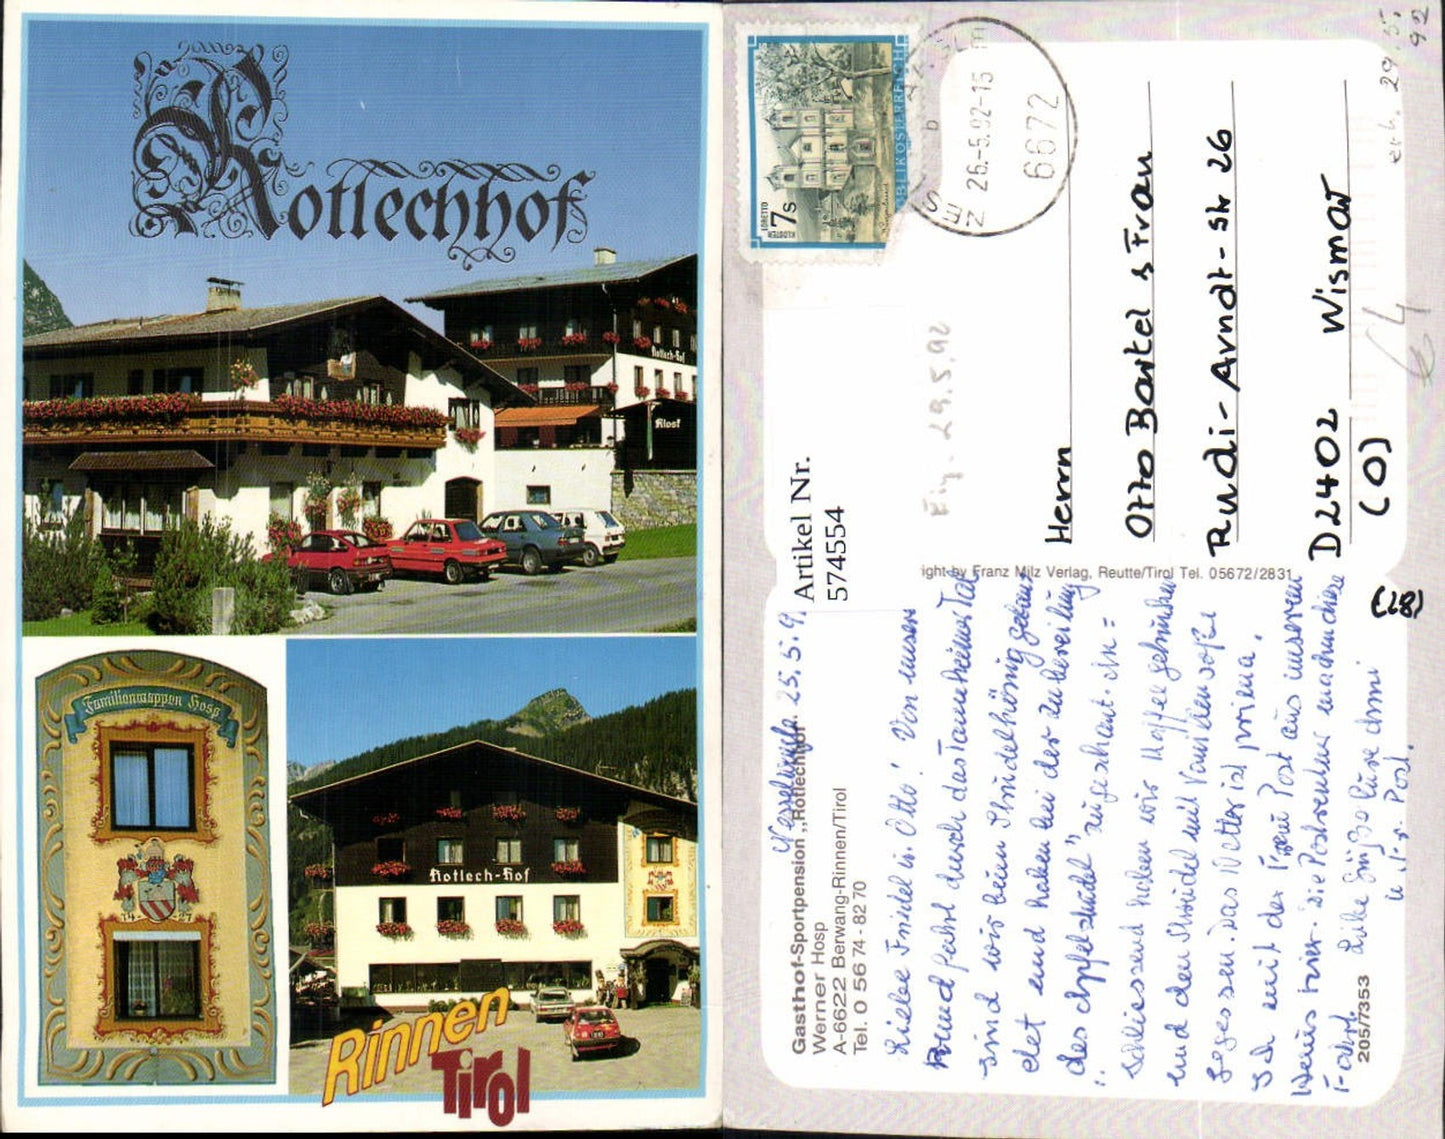 Rotlechhof
Rotlech-Hof
Klost
Familienwappen Hosp
14 27
Rotlech-Hof
Rinnen
Tirol
REPUBLIK ÖSTERREICH
KLOSTER
LORETTO
7 S
26.-5.92-15
6672
b
erh. 29.5.
92
Eig. 29.5.92
€4
Artikel Nr.
574554
Herrn
Otto Bartel & Frau
Rudi-Arndt-Str 26
D2402 Wismar
(O)
(28)
ight by Franz Milz Verlag, Reutte/Tirol Tel. 05672/2831
Gasthof-Sportpension „Rotlechhof"
Werner Hosp
A-6622 Berwang-Rinnen/Tirol
Tel. 0 56 74 - 82 70
205/7353
25.5.9
Liebe Friedel u. Otto! Von unsere
Rundfahrt durch das Tannheimer Tal
sind wir beim Strudelkönig gelan
det und haben bei der Zubereitung
des Apfelstrudel" zugeschaut. An=
schliessend haben wir Kaffee getrunken
und den Strudel mit Vanillensoße
gegessen. Das Wetter ist prima.
Ich mit der Post aus unserem
Haus hier. Die Postkarten
Fahrt. Liebe Grüße